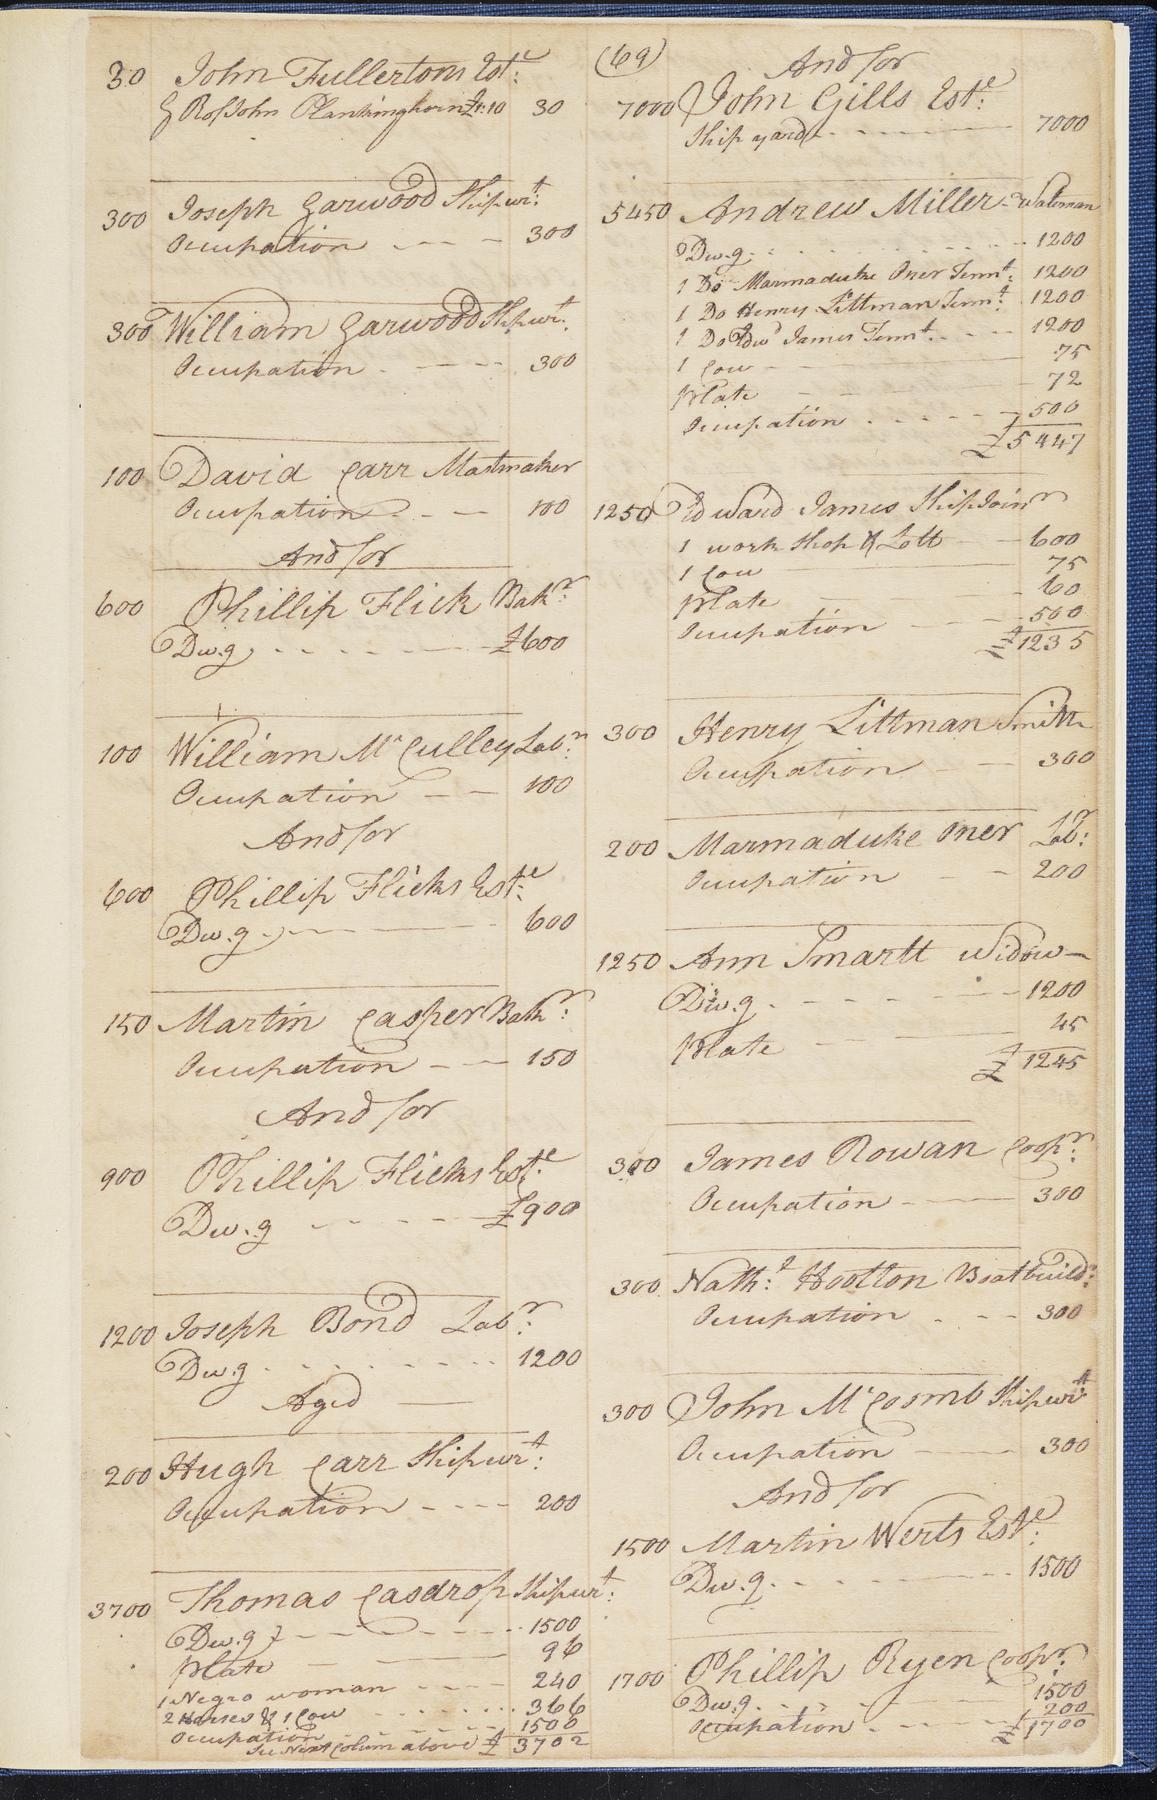 30 John Fullertons Est.e
G R of John Plankinghorn £1:10 30
300 Joseph Garwood Shipwt:
Occupation 300
300 William Garwood Shipwt:
Occupation 300
100 David Carr Mastmaker
Occupation 100
And for
600 Phillip Flick Bakr:
Dw.g £600
100 William McCulley Labr:
Occupation 100
And for
600 Phillip Flicks Este:
Dw.g 600
150 Martin Casper Bakr:
Occupation 150
And for
900 Phillip Flicks Este:
Dw.g £900
1200 Joseph Bond Labr:
Dw.g 1200
Aged
200 Hugh Carr Shipwrt:
Occupation 200
3700 Thomas Casdrop Shipwrt:
Dw.g 1500
Plate 96
1 Negro woman 240
2 Horses & 1 Cow 366
Occupation 1500
See Next Colum above £ 3702
(69)
And for
7000 John Gills Este:
Ship yard 7000
5450 Andrew Miller Waterman
Dw.g: 1200
1 Do Marmaduke Oner Tennt: 1200
1 Do Henry Littman Tennt: 1200
1 Do Edwd James Tennt. 1200
1 Cow 75
Plate 72
Occupation 500
£5447
1250 Edward James Ship Joinr
1 work Shop & Lott 600
1 Cow 75
Plate 60
Occupation 500
£1235
300 Henry Littman Smith
Occupation 300
200 Marmaduke Oner Labr:
Occupation 200
1250 Ann Smartt Widow
Dw.g. 1200
Plate 45
£1245
300 James Rowan Coopr:
Occupation 300
300 Nath:l Hootton Boatbuildr:
Occupation 300
300 John McCosmb Shipwrt
Occupation 300
And for
1500 Martin Werts Este:
Dw.g. 1500
1700 Phillip Ryen Coopr:
Dw.g. 1500
Occupation 200
£1700